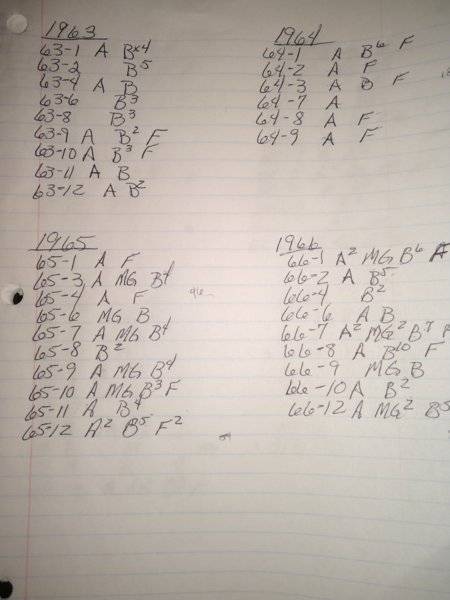 1963
63-1 A Bx4
63-2 B5
63-4 A B
63-6 B3
63-8 B3
63-9 A B2 F
63-10 A B3 F
63-11 A B
63-12 A B2
1964
64-1 A B6 F
64-2 A F
64-3 A B F
64-7 A
64-8 A F
64-9 A F
1965
65-1 A F
65-3 A MG B4
65-4 A F
65-6 MG B
65-7 A MG B4
65-8 B2
65-9 A MG B4
65-10 A MG B3 F
65-11 A B4
65-12 A2 B5 F2
1966
66-1 A2 MG B6
66-2 A B5
66-4 B2
66-6 A B
66-7 A2 MG2 B7
66-8 A B10 F
66-9 MG B
66-10 A B2
66-12 A MG2 B5